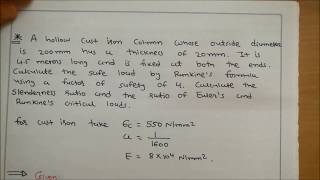 * A hollow cast iron column whose outside diameter
is 200mm has a thickness of 20mm. It is
4.5 meters long and is fixed at both the ends.
Calculate the safe load by Runkine's formula
using a factor of safety of 4. Calculate the
Slenderness ratio and the ratio of Euler's and
Runkine's critical loads.
for cast iron take σc = 550 N/mm²
a = 1/1600
E = 8×10⁴ N/mm².
⇒ Given: